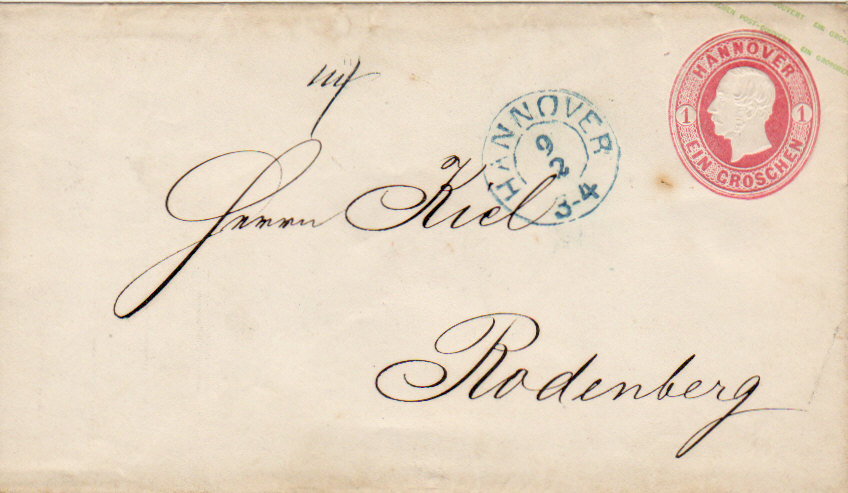 POST-COUVERT EIN GROSCHEN
HANNOVER
1 1
EIN GROSCHEN
HANNOVER
9
2
3-4
Herrn Kiel
Rodenberg